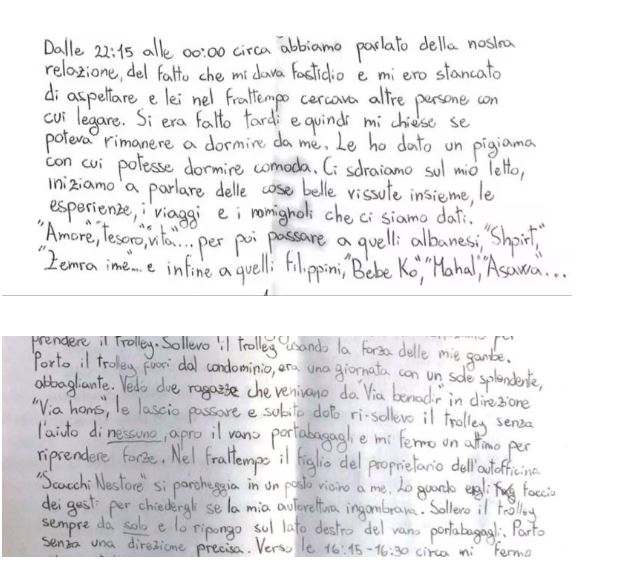 Dalle 22:15 alle 00:00 circa abbiamo parlato della nostra
relazione, del fatto che mi dava fastidio e mi ero stancato
di aspettare e lei nel frattempo cercava altre persone con
cui legare. Si era fatto tardi e quindi mi chiese se
poteva rimanere a dormire da me. Le ho dato un pigiama
con cui potesse dormire comoda. Ci sdraiamo sul mio letto,
iniziamo a parlare delle cose belle vissute insieme, le
esperienze, i viaggi e i nomignoli che ci siamo dati.
"Amore", "Tesoro", "vita"... per poi passare a quelli albanesi, "Shpirt",
"Zemra ime"... e infine a quelli filippini, "Bebe Ko", "Mahal", "Asawa"...
prendere il trolley. Sollevo il trolley usando la forza delle mie gambe.
Porto il trolley fuori dal condominio, era una giornata con un sole splendente,
abbagliante. Vedo due ragazze che venivano da "Via benadir" in direzione
"Via hons", le lascio passare e subito doto ri-sollevo il trolley senza
l'aiuto di nessuno, apro il vano portabagagli e mi fermo un attimo per
riprendere forze. Nel frattempo il figlio del proprietario dell'autofficina
"Scacchi Nestore" si parcheggia in un posto vicino a me. Lo guardo egli faccio
dei gesti per chiedergli se la mia autorettura ingombrava. Sollevo il trolley
sempre da solo e lo ripongo sul lato destro del vano portabagagli. Parto
senza una direzione precisa. Verso le 16:15-16:30 circa mi fermo